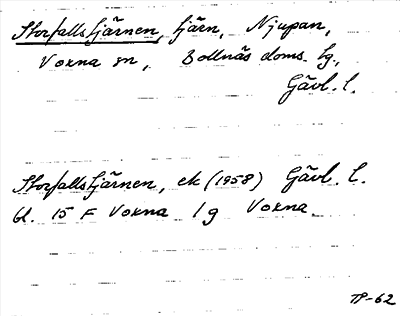 Storfallstjärnen, tjärn, Njupan,
Voxna sn, Bollnäs doms. tg.,
Gävl. l.
Storfallstjärnen, ek (1958) Gävl. l.
bl. 15 F Voxna 1g Voxna
TP-62